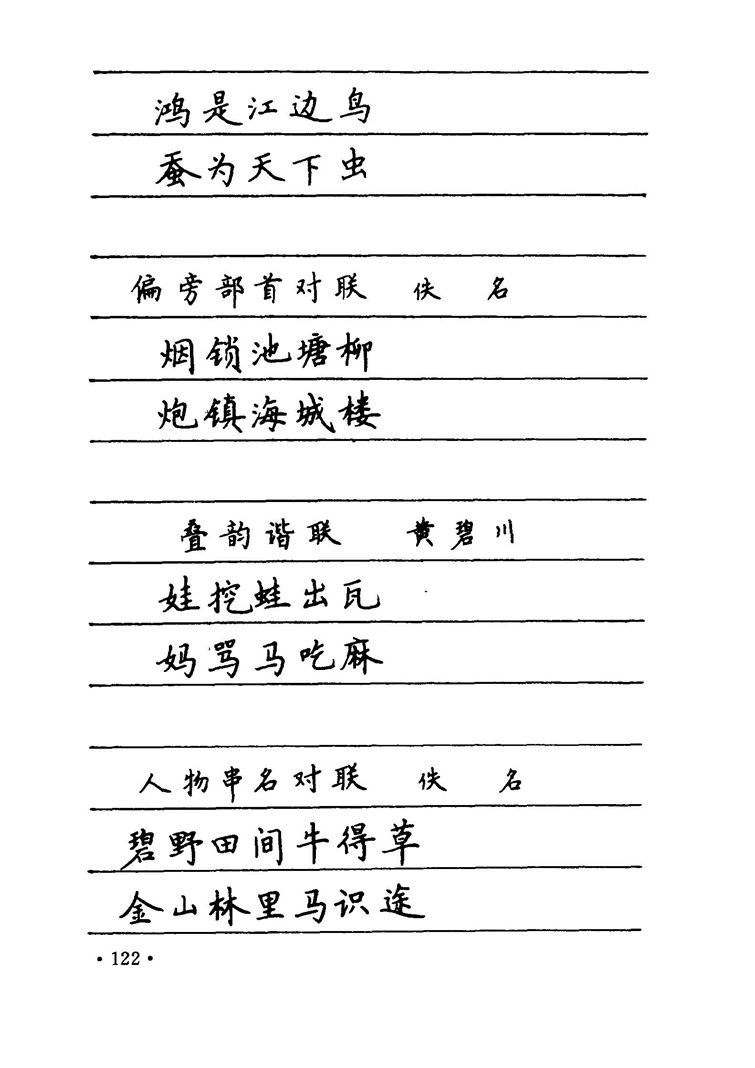 鸿是江边鸟
蚕为天下虫
偏旁部首对联 佚名
烟锁池塘柳
炮镇海城楼
叠韵谐联 黄碧川
娃挖蛙出瓦
妈骂马吃麻
人物串名对联 佚名
碧野田间牛得草
金山林里马识途
·122·